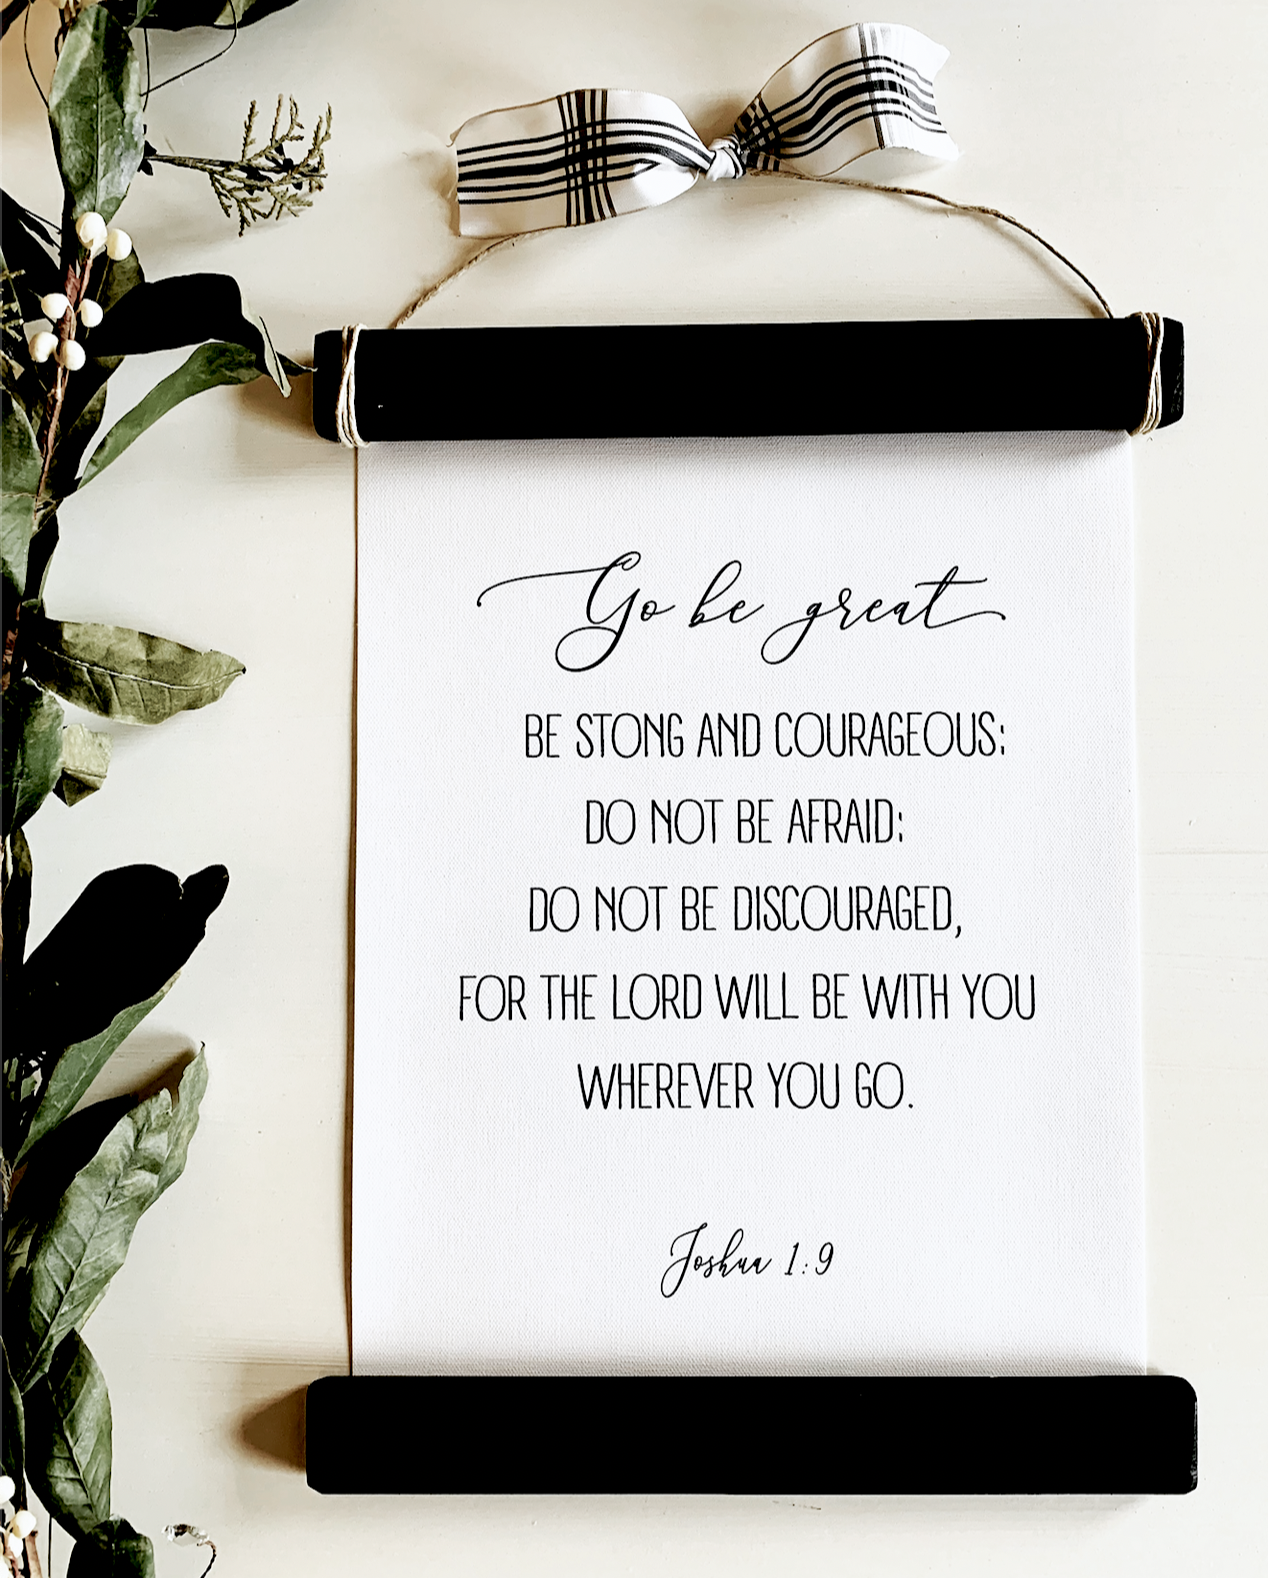 Go be great
BE STONG AND COURAGEOUS;
DO NOT BE AFRAID;
DO NOT BE DISCOURAGED,
FOR THE LORD WILL BE WITH YOU
WHEREVER YOU GO.
Joshua 1:9